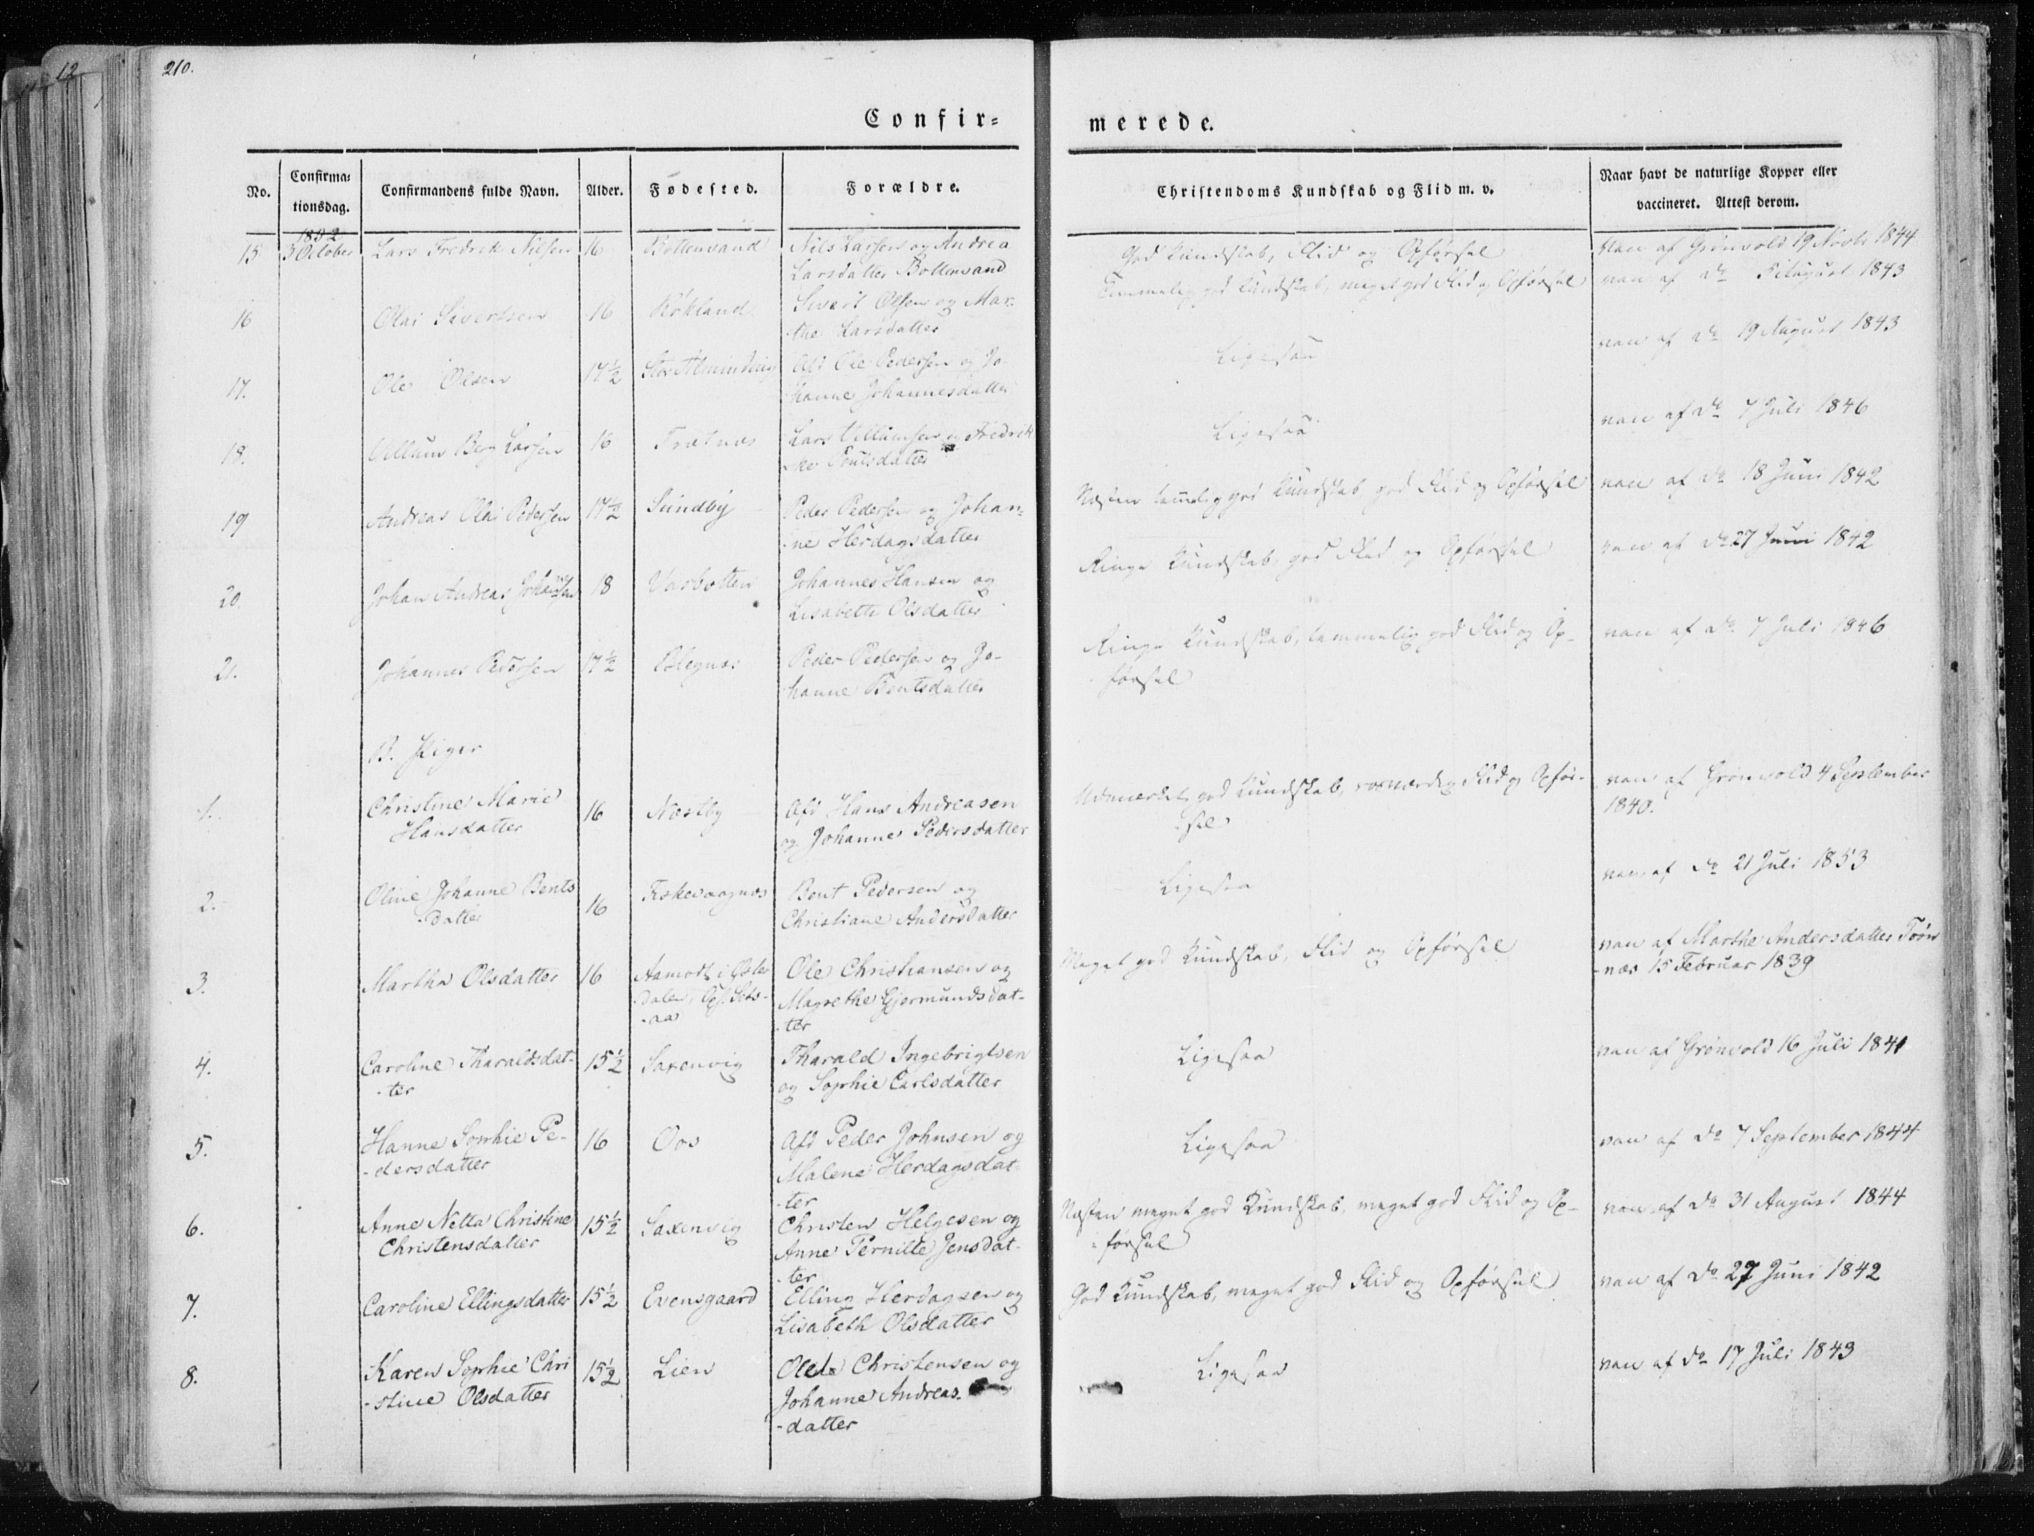 12
210.
Confir=
merede.
No.
Confirma=
tionsdag.
Confirmandens fulde Navn.
Alder.
Fødested.
Forældre.
Christendoms Kundskab og Flid m. v.
Naar havt de naturlige Kopper eller
vaccineret. Attest derom.
1852
15 3 October Lars Fredrik Nilsen 16 Bottenvand Nils Larsen og Andrea God Kundskab, Flid og Opførsel van af Grønvold 19 Novbr 1844
Larsdatter Bottenvand
16 Olai Sivertsen 16 Røkland Sivert Olsen og Mar- Temmelig god Kundskab, meget god Flid og Opførsel van af do August 1843
the Larsdatter
17. Ole Olsen 17½ Stor Alminding Afd Ole Pedersen og Jo- Ligesaa van af do 19 August 1843
hanne Johannesdatter
18. Villum Berg Larsen 16 Lars Villumsen og Fredrik- Ligesaa van af do 7 Juli 1846
ke Poulsdatter
19 Andreas Olai Pedersen 17½ Sundby Peder Pedersen og Johan= Næsten temelig god Kundskab god Flid og Opførsel van af do 18 Juni 1842
-ne Herdagsdatter
20. Johan Andreas Johannesen 18 Varbotten Johannes Hansen og Ringe Kundskab, god Flid og Opførsel van af do 27 Juni 1842
Lisabeth Olsdatter
21. Johannes Pedersen 17½ Peder Pedersen og Jo- Ringe Kundskab, temmelig god Flid og Op- van af do 7 Juli 1846
hanne Bentsdatter førsel
B. Piger
1. Christine Marie 16 Næstby Afd Hans Andreasen Udmærket god Kundskab, roesværdig Flid og Opfør- van af Grønvold 4 September
Hansdatter og Johanne Pedersdatter -sel 1840.
2. Oline Johanne Bents 16 Fiskevaagnæs Bent Pedersen og Ligesaa van af do 21 Juli 1853
-datter Christiane Andersdatter
3. Martha Olsdatter 16 Aamodt i Øster Ole Christiansen og Meget god Kundskab, Flid og Opførsel van af Marthe Andersdatter
-dalen, Magrethe Gjermundsdat- -næs 15 Februar 1839
-aa -ter
4. Caroline Tharaldsdat- 15½ Saxenvig Tharald Ingebrigtsen Ligesaa van af Grønvold 16 Juli 1841
-ter og Sophie Carlsdatter
5. Hanne Sophie Pe- 16 Oos Afd Peder Johnsen og Ligesaa van af do 7 September 1844
-dersdatter Malene Herdagsdat-
-ter
6. Anne Netta Christine 15½ Saxenvig Christen Helgesen og Næsten meget god Kundskab, meget god Flid og Op- van af do 31 August 1844
Christensdatter Anne Pernille Jensdat- -førsel
-ter
7. Caroline Ellingsdatter 15½ Evensgaard Elling Herdagsen og God Kundskab, meget god Flid og Opførsel van af do 27 Juni 1842
Lisabeth Olsdatter
8. Karen Sophie Chri 15½ Lien Ole Christensen og Ligesaa van af do 17 Juli 1843
-stine Olsdatter Johanne Andreas-
-datter